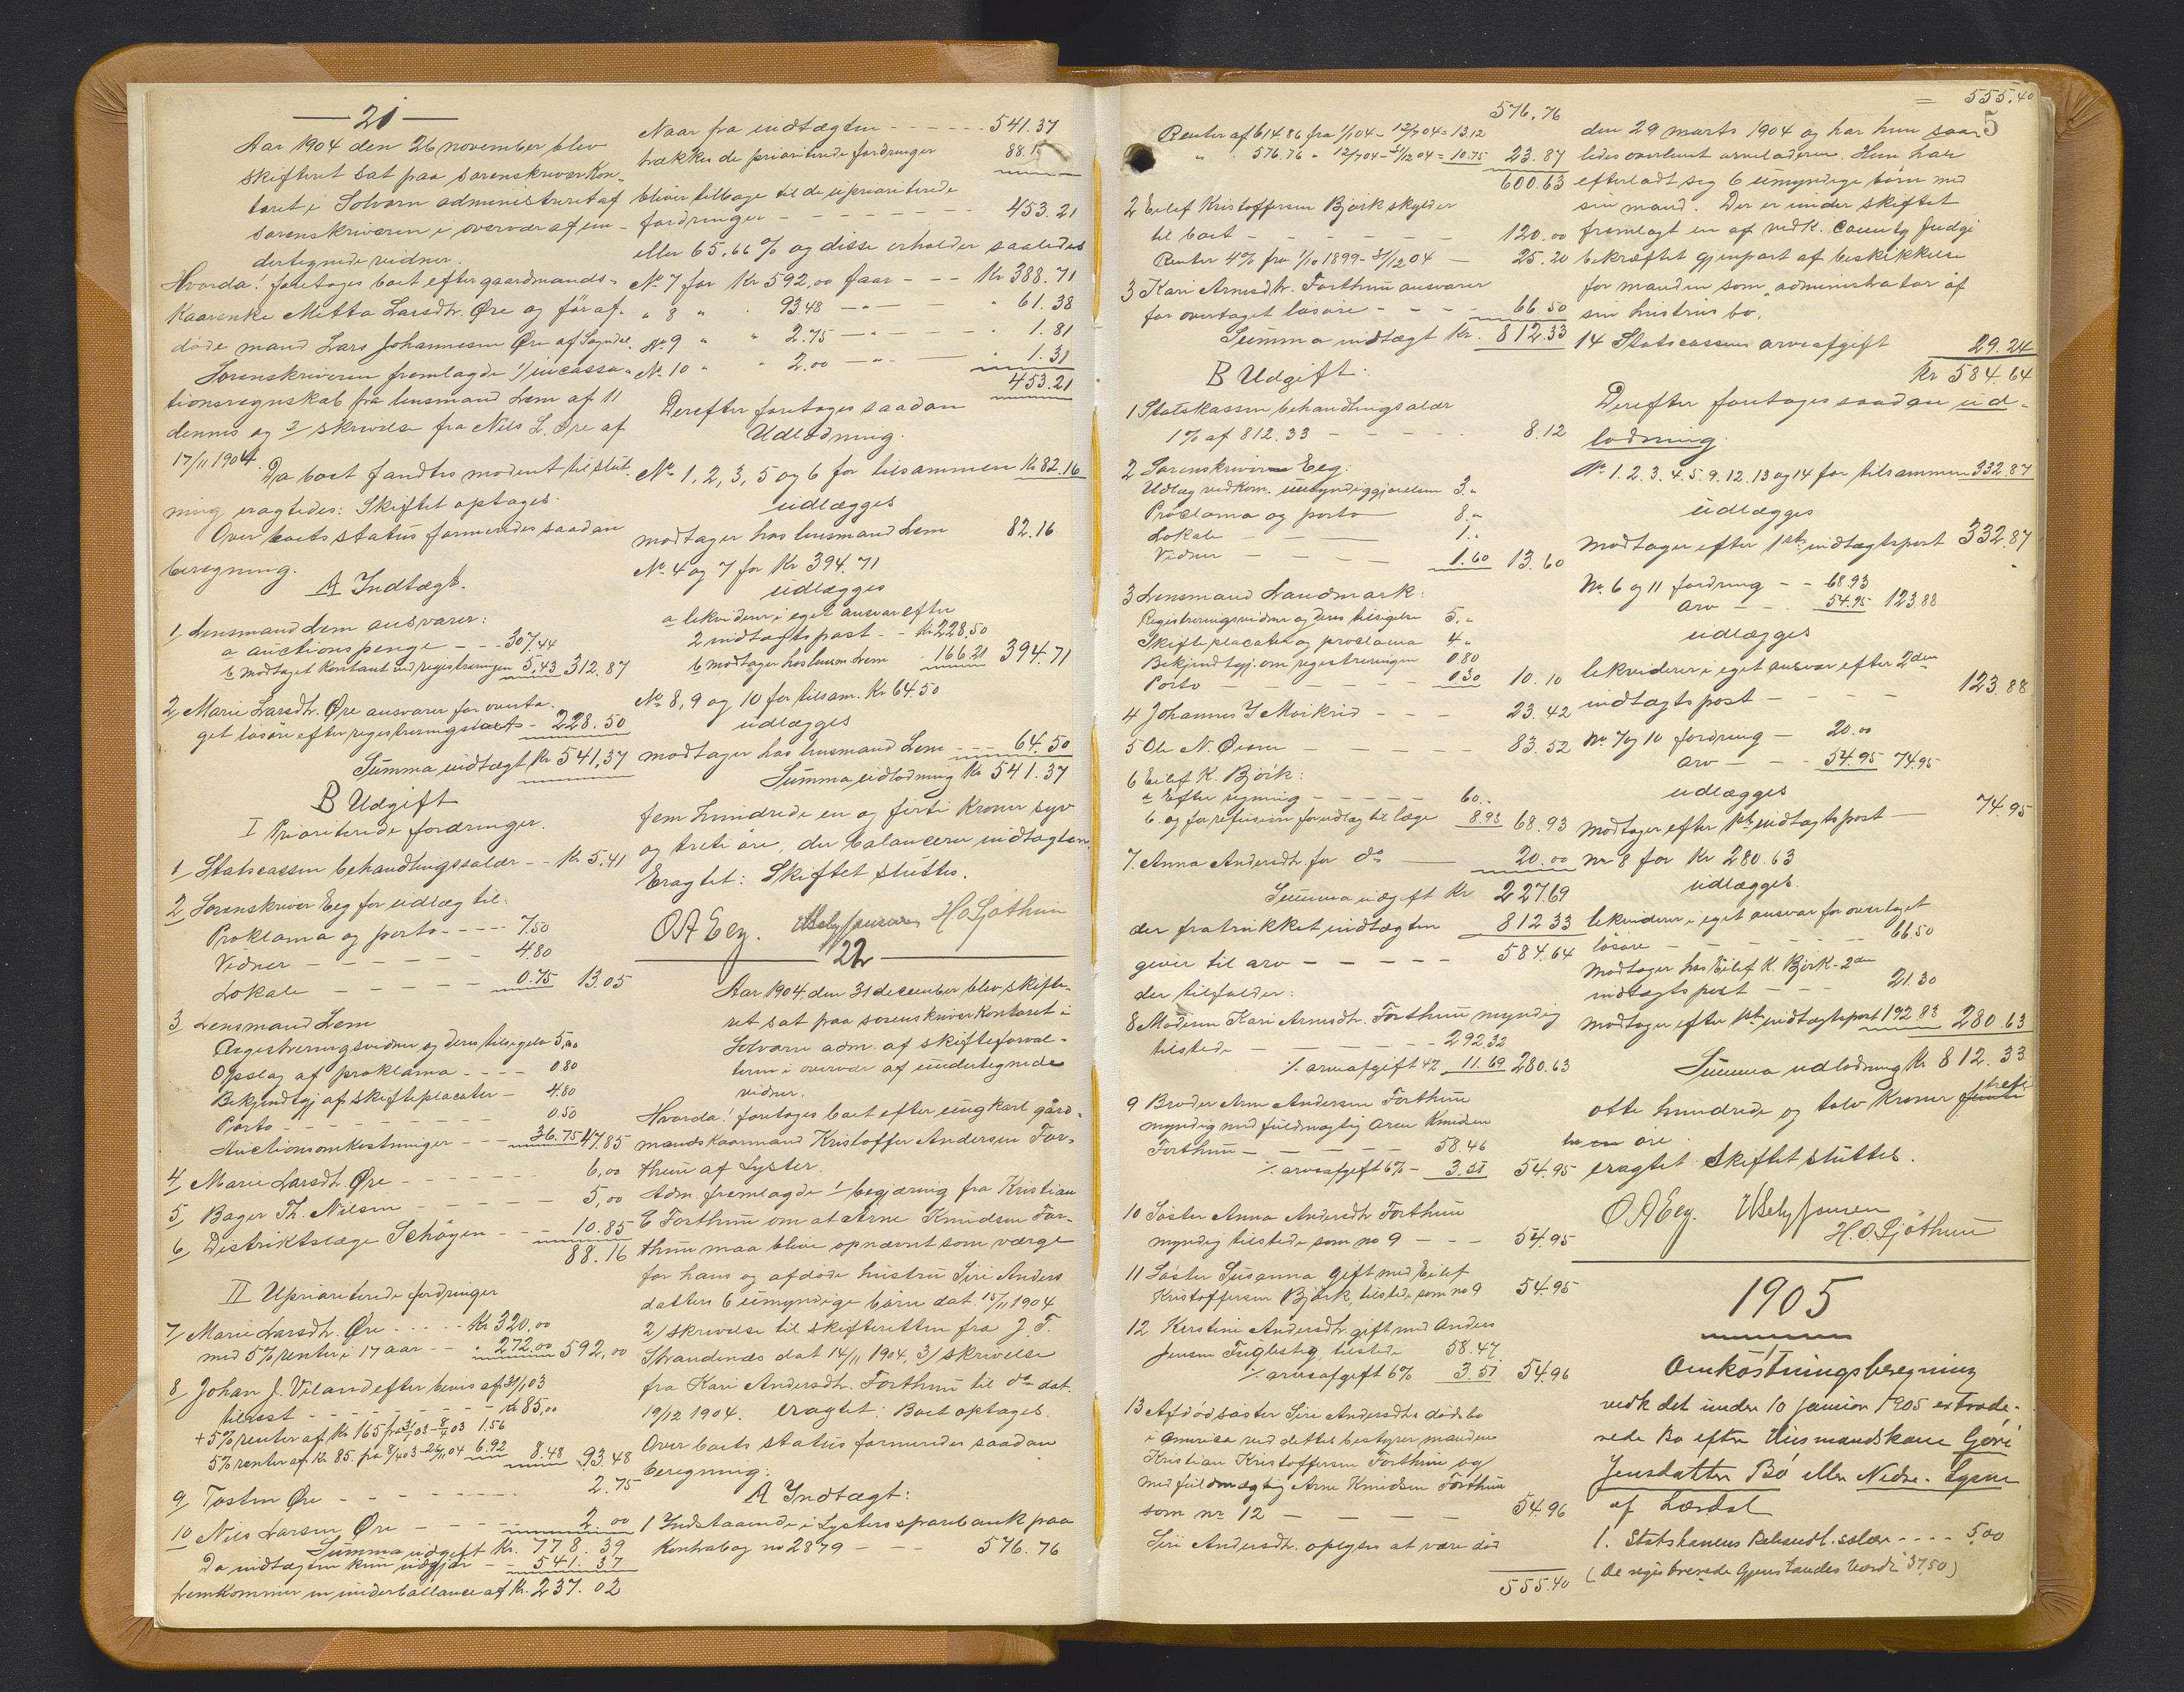 — 21 —
Aar 1904 den 26 november blev
skifteret sat paa sorenskriverkon-
toret i Solvorn administreret af
sorenskriveren i overvær af un-
dertegnede vidner.
Hvorda! foretages boet efter gaardmands-
kaarenke Mitta Larsdtr. Øre og før af-
døde mand Lars Johannessen Øre af Sogndal.
Sorenskriveren fremlagde 1/ incassa-
tionsregnskab fra lensmand Lem af 11
dennes og 2/ skrivelse fra Nils L. Øre af
17/11 1904.
Da boet fandtes modent til slut-
ning eragtedes: Skiftet optages.
Over boets status formeredes saadan
beregning.
A Indtægt.
1, Lensmand Lem ansvarer:
a auctionspenge - - - 307.44
b modtaget kontant ved registreringen 5,43 312,87
2, Marie Larsdtr. Øre ansvarer for overta-
get løsøre efter registreringstaxt - 228.50
Summa indtægt Kr 541,37
B Udgift
I Prioriterede fordringer.
1, Statscassen behandlingssalær - - Kr 5.41
2, Sorenskriver Eeg for udlæg til:
Proklama og porto - - - - 7.50
Vidner - - - - - 4.80
Lokale - - - - - 0.75 13.05
3, Lensmand Lem
Registreringsvidner og deres tilsigelse 5,00
Opslag af proklama - - - - 0.80
Bekjendtgj. af skifteplacater - 4.80
Porto - - - - - 0.50
Auctionsomkostninger - - - 36.75 47.85
4, Marie Larsdtr. Øre - - - - - 6,00
5, Bager Th. Nilsen - - - - - 5,00
6, Distriktslæge Schøyen - - 10.85
88.16
II Uprioriterede fordringer
7, Marie Larsdtr. Øre - - - - - Kr 320,00
med 5% renter i 17 aar - - " 272,00 592,00
8 Johan J. Viland efter bevis af 31/1 03
tilrest - - - - - - Kr 85,00
+ 5% renter af Kr 165 fra 31/1 03 - 8/4 03 1.56
5% renter af Kr. 85. fra 8/4 03 - 26/11 04 6.92 8.48 93.48
9, Tosten Øre - - - - - 2.75
10 Nils Larsen Øre - - - - - 2.00
Summa udgift Kr. 778.39
Da indtægten kun udgjør - - 541.37
fremkommer en underballance af Kr. 237.02
Naar fra indtægten - - - - - - 541.37
trækkes de prioriterede fordringer 88.1
bliver tilbage til de uprioriterede
fordringer - - - - - - - 453.21
eller 65.66% og disse erholder saaledes
No 7 for Kr 592,00 faar - - - Kr 388.71
" 8 " " 93.48 —"— " 61.38
No 9 " " 2.75 —"— " 1.81
No 10 " " 2.00 —"— " 1.31
453.21
Derefter foretages saadan
Udlodning.
No 1, 2, 3, 5 og 6 for tilsammen Kr 82.16
udlægges
modtager hos lensmand Lem 82.16
No 4 og 7 for Kr 394.71
udlægges
a lekviderer i eget ansvar efter
2 indtægtspost - - Kr 228,50
b modtager hos lensm Lem " 166.21 394.71
No 8, 9 og 10 for tilsam. Kr 64.50
udlægges
modtager hos lensmand Lem - - - 64.50
Summa udlodning Kr 541.37
fem hundrede en og førti Kroner syv
og treti øre, der balancerer indtægten.
Eragtet: Skiftet sluttes.
OA Eeg. H O Sjøthun
22
Aar 1904, den 31 december blev skifte-
ret sat paa sorenskriverkontoret i
Solvorn adm. af skifteforval-
teren i overvær af undertegnede
vidner.
Hvorda! foretages boet efter ungkarl gård-
mands kaarmand Kristoffer Andersen For-
thun af Lyster.
Adm. fremlagde 1/ begjæring fra Kristian
E Forthun om at Arne Knudsen For-
thun maa blive opnævnt som værge
for hans og afdøde hustru Siri Anders
datters 6 umyndige børn dat. 15/11 1904
2/ skrivelse til skifteretten fra J. T.
Strandenæs dat 14/11 1904, 3/ skrivelse
fra Kari Andersdtr. Forthun til do dat.
19/12 1904. Eragtet: Boet optages.
Over boets status formeredes saadan
beregning:
A Indtægt:
1 Indstaaende i Lysters sparebank paa
Kontrabog no 2879 - - - 576.76
576.76
Renter af 614.86 fra 1/1 04 - 12/7 04 = 13.12
" " 576.76 " 12/7 04 - 31/12 04 = 10.75 23.87
600.63
2 Eilef Kristoffersen Bjørk skylder
til boet - - - - - - 120.00
Renter 4% fra 1/10 1899 - 31/12 04 — 25.20
3 Kari Arnesdtr. Forthun ansvarer
for overtaget løsøre - - - - 66.50
Summa indtægt Kr. 812.33
B Udgift:
1 Statskassen behandlingsalær
1% af 812.33 - - - - - 8.12
2 Sorenskriver Eeg:
Udlæg ved Kon. umyndiggjørelsen 3.„
Proclama og porto 8.„
Lokale - - - - 1.„
Vidner - - - - 1.60 13.60
3 Lensmand Landmark:
Registreringsvidner og deres tilsigelse 5.„
Skifteplacater og proclama 4.„
Bekjendtgj. om registreringen 0.80
Porto - - - - - 0.30 10.10
4 Johannes J Moikrid - - - 23.42
5 Ole N. Øien - - - - - 83.52
6 Eilef K. Bjørk:
a Efter regning - - - - - 60.„
b. og for refusion for udlæg til læge 8.93 68.93
7. Anna Andersdtr. for do — 20.00
Summa udgift Kr 227.69
der fratrukket indtægten 812.33
giver til arv - - - - - 584.64
der tilfalder:
8 Moderen Kari Arnesdtr. Forthun myndig
tilstede - - - - - - 292.32
÷ arveafgift 4% 11.69 280.63
9 Broder Arne Andersen Forthun
myndig med fuldmægtig Arne Knudsen
Forthun - - - - - 58.46
÷ arveafgift 6% - 3.51 54.95
10 Søster Anna Andersdtr Forthun
myndig tilstede som no 9 - - - 54.95
11 Søster Susanna gift med Eilef
Kristoffersen Bjørk, tilstede som no 9 54.95
12 Kirstine Andersdtr. gift med Anders
Jensen Fuglesteg, tilstede 58.47
÷ arveafgift 6% 3.51 54.96
13 Afdød søster Siri Andersdtrs dødsbo
i Amerika ved dettes bestyrer manden
Kristian Kristoffersen Forthun og
med fuldmægtig Arne Knudsen Forthun
som nr 12 - - - - 54.96
Siri Andersdtr. oplyses at være død
555.40
= 555.40
5
den 29 marts 1904 og har hun saa-
ledes overlevet arveladeren. Hun har
efterladt sig 6 umyndige børn med
sin mand. Der er under skiftet
fremlagt en af vedk. County Judge
bekræftet gjenpart af beskikkelse
for manden som „administrator af
sin hustrus bo.
14 Statscassens arveafgift 29.24
Kr 584.64
Derefter foretages saadan ud-
lodning.
No 1. 2. 3. 4. 5. 9. 12. 13 og 14 for tilsammen 332.87
udlægges
Modtager efter 1ste indtægtspost 332.87
No. 6 og 11 fordring - - 68.93
arv - - - 54.95 123.88
udlægges
lekviderer i eget ansvar efter 2den
indtægtspost - - - - 123.88
No. 7 og 10 fordring - 20.00
arv - - - 54.95 74.95
udlægges
modtager efter 1ste indtægtspost — 74.95
nr 8 for Kr 280.63
udlægges.
lekviderer i eget ansvar for overtaget
løsøre - - - - - - 66.50
Modtager hos Eilef K. Bjørk - 2den
indtægtspost - - - 21.30
Modtager efter 1ste indtægtspost 192.83 280.63
Summa udlodning Kr 812.33
otte hundrede og tolv Kroner treti
tre øre.
eragtet Skiftet sluttes.
O A Eeg.
H. O. Sjøthun
1905
Omkostningsberegning
vedk det under 10 januar 1905 extrade-
rede Bo efter Husmandskone Gøri
Jensdatter Bø eller Nedre-Eggum
af Lærdal
1. Statskassens Behandl. salær - - - - 5,00
(De registrerede Gjenstandes Værdi 37,50)